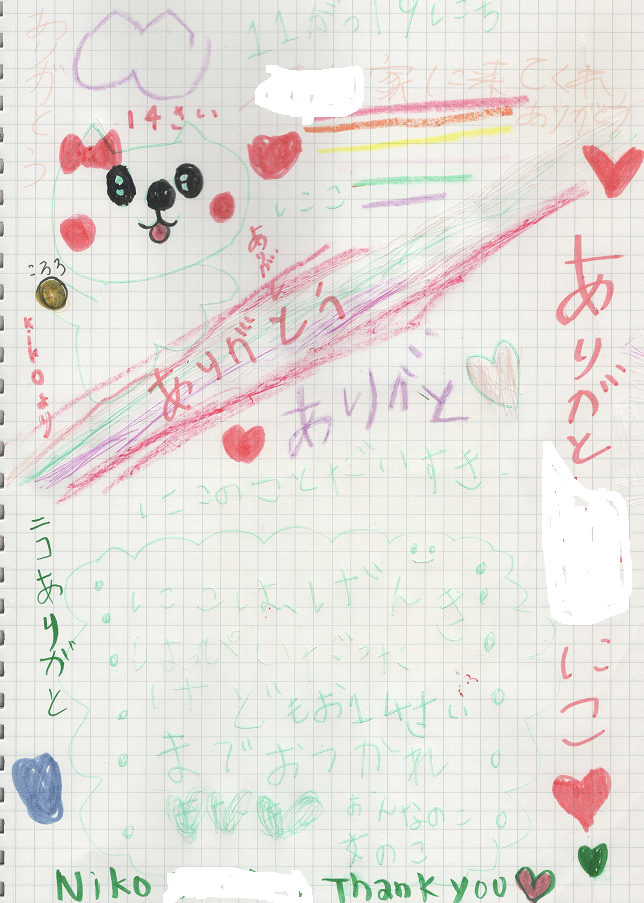 11がつ19にち
ありがとう
家に来てくれ
ありがとう
14さい
にこ
ころろ
ありがと
ありがとう
ありがと
ありがと
にこ
にこのことだいすき
ニコありがと
にこは、げんき
いっぱいだった
けどもお14さい
までおつかれ
おんなのこ
Niko
Thank you